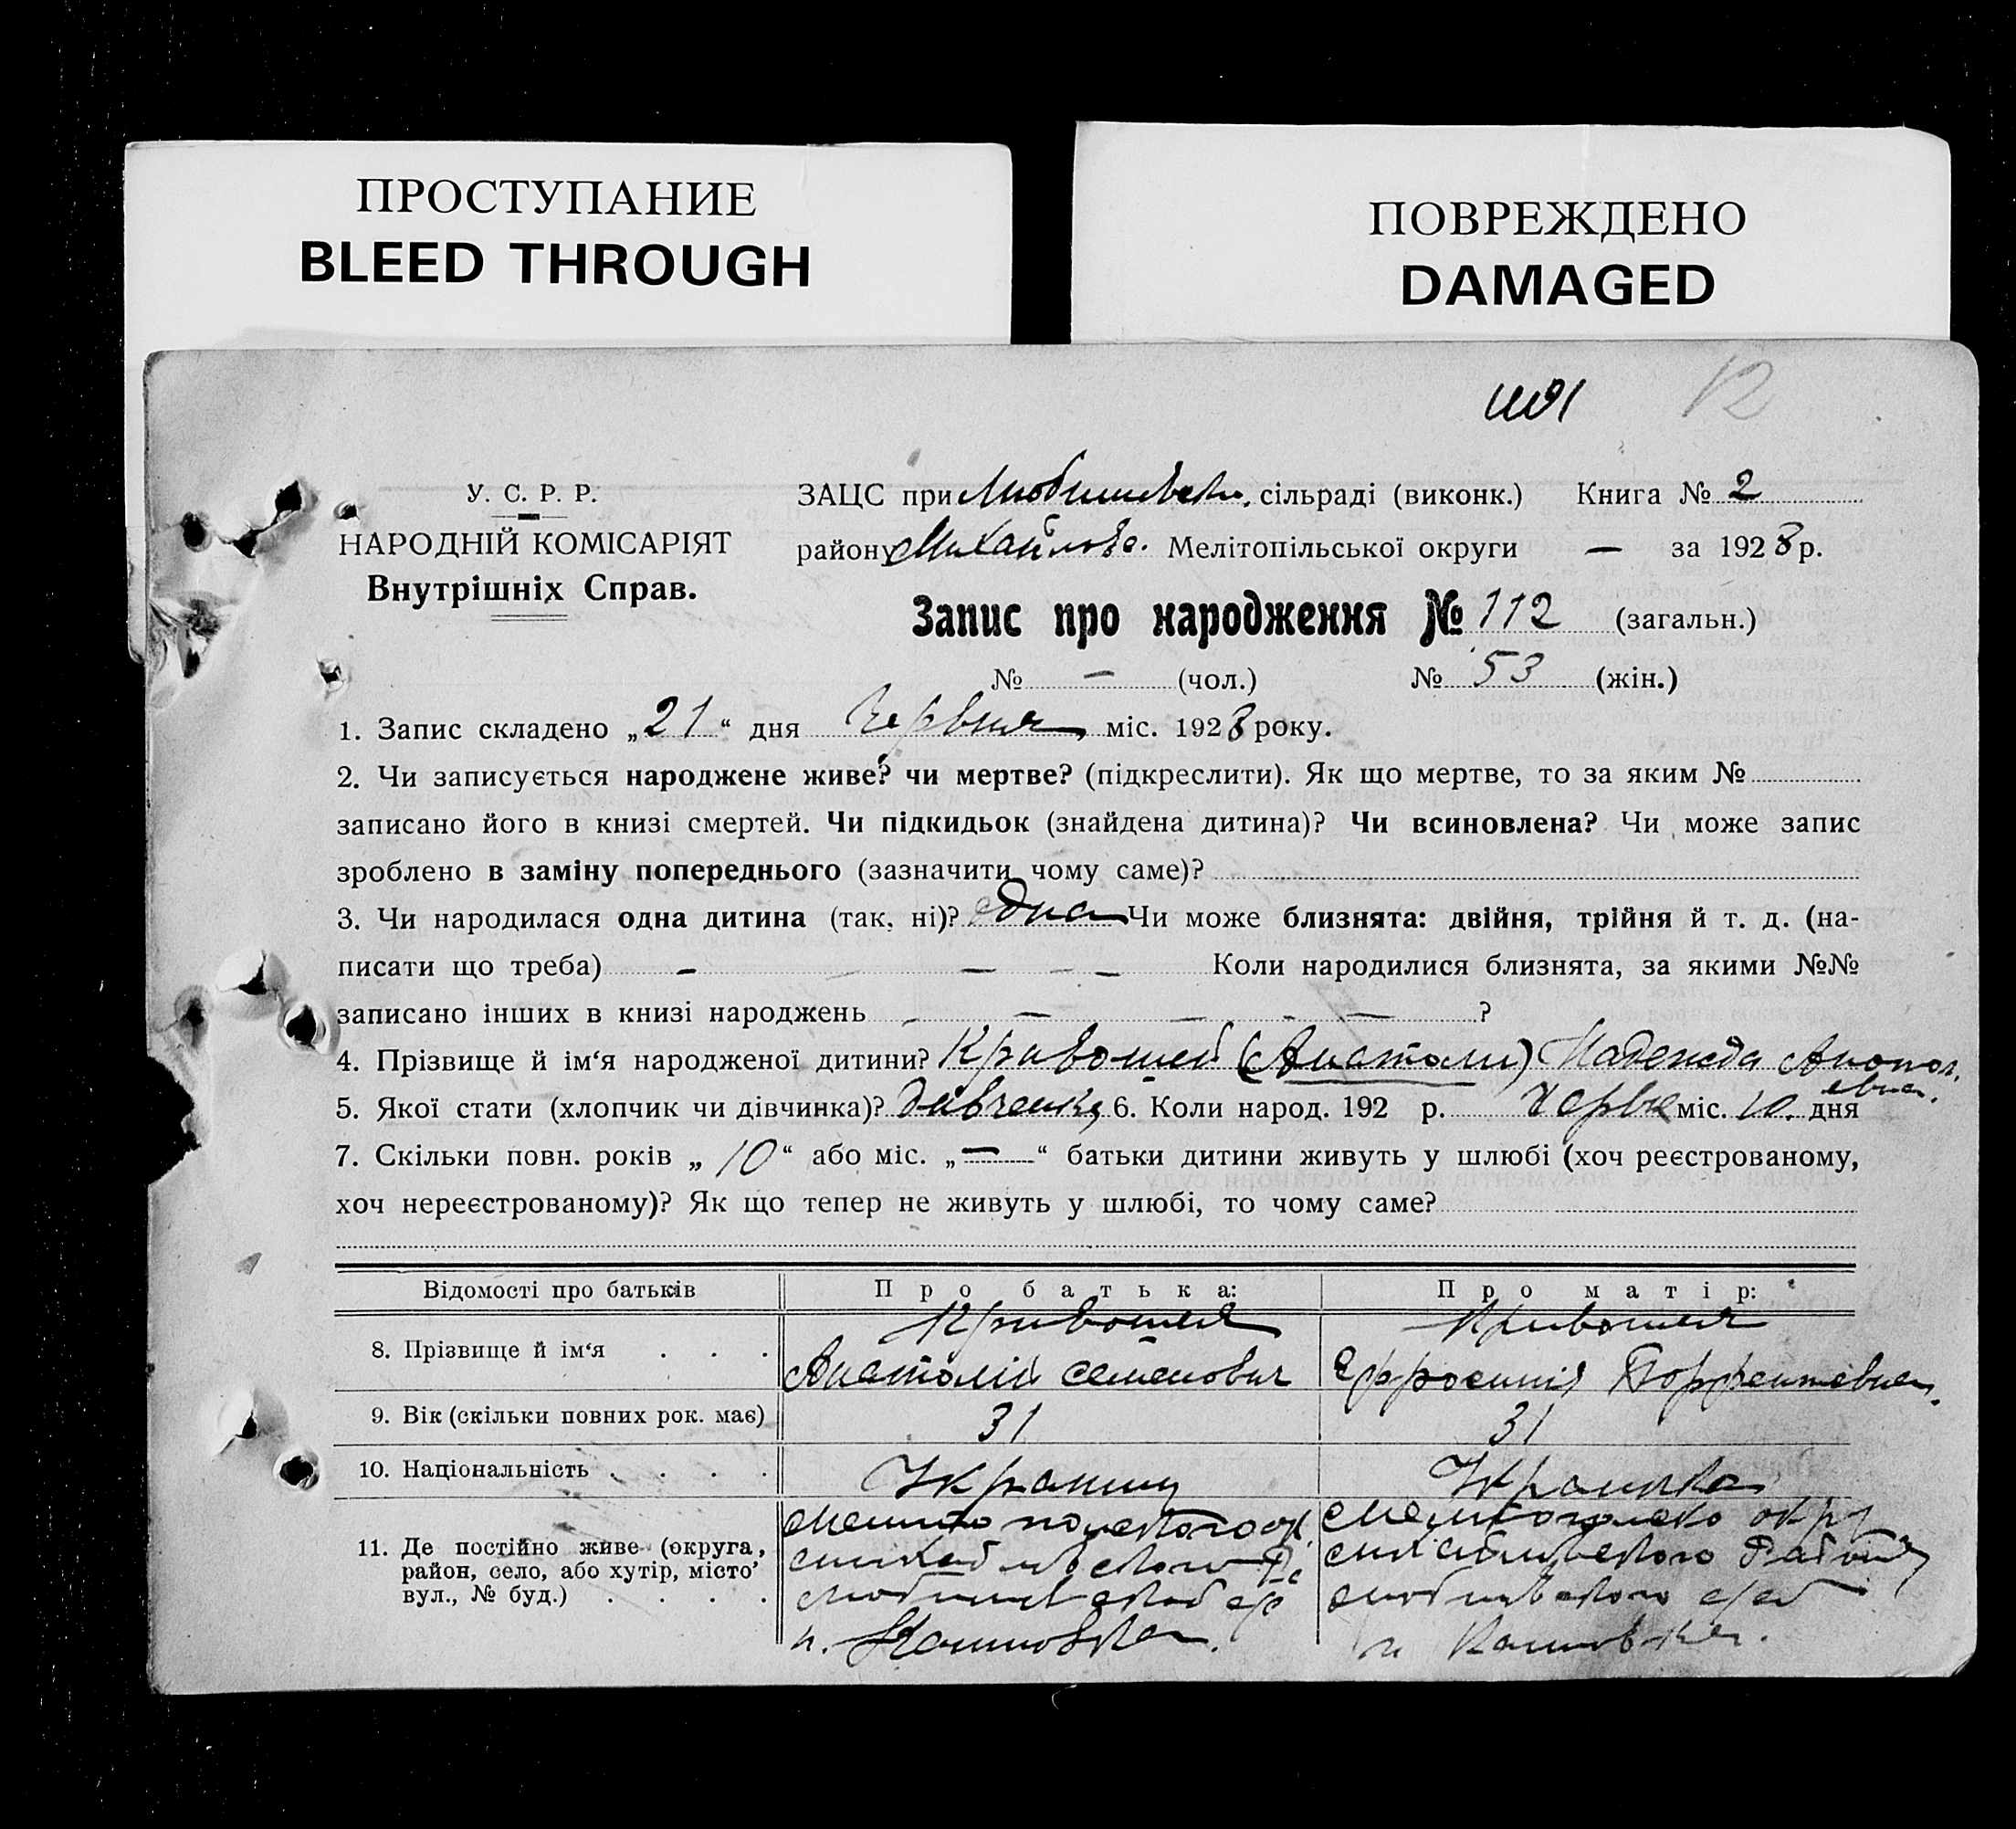 ПРОСТУПАНИЕ
BLEED THROUGH
ПОВРЕЖДЕНО
DAMAGED
12
У. С. Р. Р.
НАРОДНІЙ КОМІСАРІЯТ
Внутрішніх Справ.
ЗАЦС при Любимівск. сільраді (виконк.) Книга № 2
району Михайлов. Мелітопільської округи — за 1928 р.
Запис про народження № 112 (загальн.)
№ — (чол.) № 53 (жін.)
1. Запис складено „21“ дня Червня міс. 1928 року.
2. Чи записується народжене живе? чи мертве? (підкреслити). Як що мертве, то за яким №
записано його в книзі смертей. Чи підкидьок (знайдена дитина)? Чи всиновлена? Чи може запис
зроблено в заміну попереднього (зазначити чому саме)?
3. Чи народилася одна дитина (так, ні)? одна Чи може близнята: двійня, трійня й т. д. (на-
писати що треба) — — — — Коли народилися близнята, за якими №№
записано інших в книзі народжень — — — — — ?
4. Прізвище й ім‘я народженої дитини? Кривошей (Анатоли) Надежда
5. Якої стати (хлопчик чи дівчинка)? 6. Коли народ. 192 р. Червн міс. 10. дня
7. Скільки повн. років „10“ або міс. „—“ батьки дитини живуть у шлюбі (хоч реєстрованому,
хоч нереєстрованому)? Як що тепер не живуть у шлюбі, то чому саме?
Відомості про батьків Про батька: Про матір:
8. Прізвище й ім‘я . . . Кривошея Кривошея
Анатолій Семенович Єфросинія
9. Вік (скільки повних рок. має) 31 31
10. Національність . . . . Украинц Украинка
11. Де постійно живе (округа,
район, село, або хутір, місто
вул., № буд.) . . . .